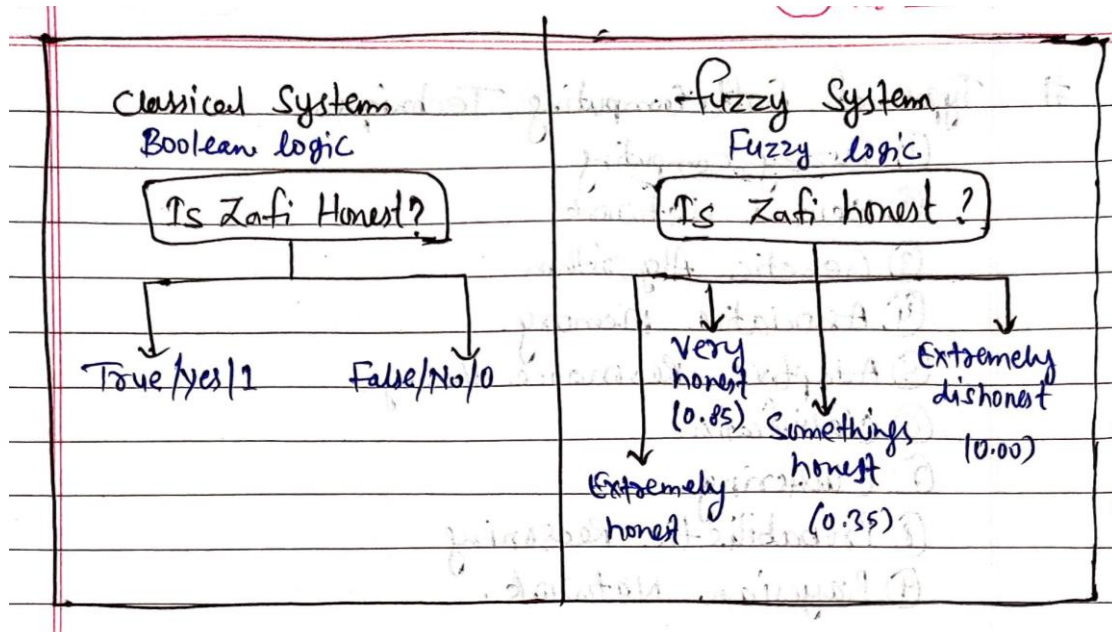 Classical Systems
Boolean logic
Is Zafi Honest?
True/yes/1
False/No/0
fuzzy System
Fuzzy logic
Is Zafi honest?
Extremely
honest
Very
honest
(0.85)
Somethings
honest
(0.35)
Extremely
dishonest
(0.00)